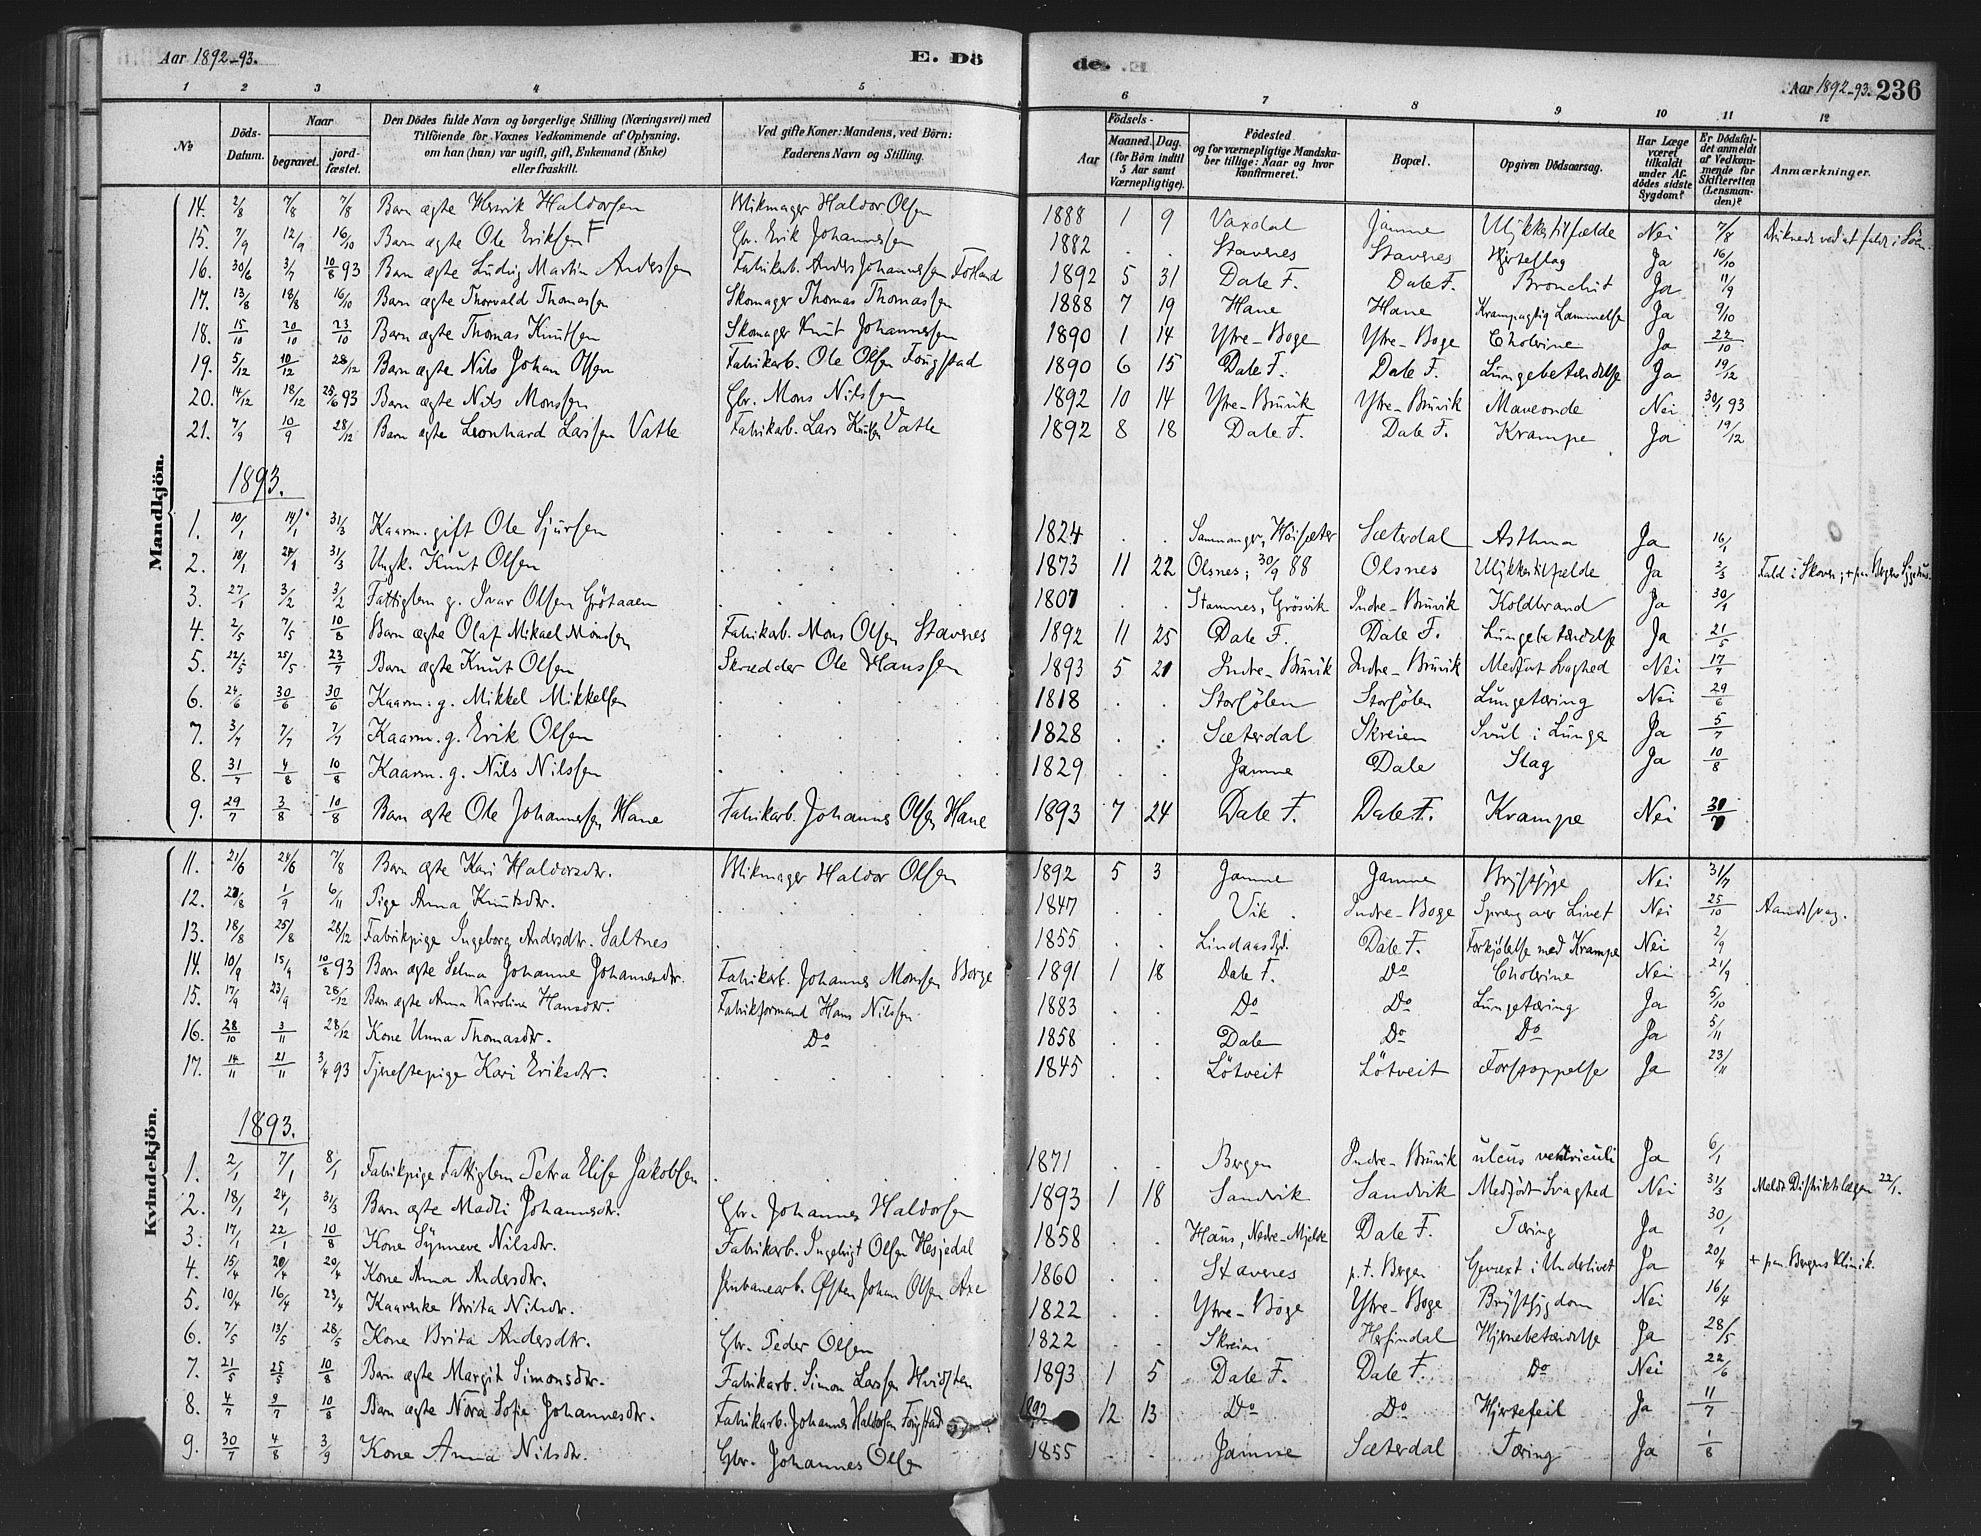 Aar 1892-93. E. Dö de. Aar 1892-93. 236
1 2 3 4 5 6 7 8 9 10 11 12
No Döds-Datum. Naar begravet. jord-fæstet. Den Dödes fulde Navn og borgerlige Stilling (Næringsvei) med Tilföiende for Voxnes Vedkommende af Oplysning, om han (hun) var ugift, gift, Enkemand (Enke) eller fraskilt. Ved gifte Koner: Mandens, ved Börn: Faderens Navn og Stilling. Födsels- Aar Maaned. Dag. (for Börn indtil 5 Aar samt Værnepligtige). Födested og for værnepligtige Mandskaber tillige: Naar og hvor Konfirmeret. Bopæl. Opgiven Dödsaarsag. Har Læge været tilkaldt under Afdödes sidste Sygdom? Er Dödsfaldet anmeldt af Vedkommende for Skifteretten (Lensmanden)? Anmærkninger.
Mandkjön.
14. 2/8 7/8 7/8 Barn ægte Henrik Haldorsen Blikmager Haldor Olsen 1888 1 9 Vaxdal Jamne Ulykkestilfælde Nei 7/8
15. 7/9 12/9 16/10 Barn ægte Ole Eriksen F Gbr. Erik Johannessen 1882 . . Stavenes Stavenes Hjerteslag Ja 16/10
16. 30/6 3/7 10/8 93 Barn ægte Ludvig Martin Anderssen Fabrikarb. Anders Johannessen Fosland 1892 5 31 Dale F. Dale F. Bronchit Ja 11/9
17. 13/8 18/8 16/10 Barn ægte Thorvald Thomassen Skomager Thomas Thomassen 1888 7 19 Hane Hane Krampagtig Lammelse Ja 9/10
18. 15/10 20/10 23/10 Barn ægte Thomas Knutsen Skomager Knut Johannessen 1890 1 14 Ytre-Boge Ytre-Boge Cholerine Ja 22/10
19. 5/12 10/12 28/12 Barn ægte Nils Johan Olsen Fabrikarb. Ole Olsen Fougstad 1890 6 15 Dale F. Dale F. Lungebetændelse Ja 19/12
20. 14/12 18/12 25/6 93 Barn ægte Nils Monssen Gbr. Mons Nilssen 1892 10 14 Ytre-Bruvik Ytre-Bruvik Maveonde Nei 30/1 93
21. 7/9 10/9 28/12 Barn ægte Leonhard Larssen Vatle Fabrikarb. Lars Knutsen Vatle 1892 8 18 Dale F. Dale F. Krampe Ja 19/12
1893.
1. 10/1 14/1 31/3 Kaarm. gift Ole Sjursen . . . . 1824 . . Samnanger, Höisæter Sæterdal Asthma Ja 16/1
2. 18/1 24/1 31/3 Ungk. Knut Olsen . . . . 1873 11 22 Olsnes; 30/9 88 Olsnes Ulykkestilfælde Ja 2/3 Fald i Skoven; + paa Bergens Sygehus.
3. 27/1 3/2 3/2 Fattiglem g. Ivar Olsen Götaaen . . . . 1807 . . Stamnes, Grösvik Indre-Bruvik Koldbrand Ja 30/1
4. 2/5 7/5 10/8 Barn ægte Olaf Mikael Monsen Fabrikarb. Mons Olsen Stavenes 1892 11 25 Dale F. Dale F. Lungebetændelse Ja 21/5
5. 22/5 25/5 23/7 Barn ægte Knut Olsen Skrædder Ole Hanssen 1893 5 21 Indre-Bruvik Indre-Bruvik Medfödt Svaghed Nei 17/7
6. 24/6 30/6 30/6 Kaarm. g. Mikkel Mikkelsen . . . . 1818 . . Storsölen Storsölen Lungetæring Nei 29/6
7. 3/7 7/7 7/7 Kaarm. g. Erik Olsen . . . . 1828 . . Sæterdal Skreien Svul i Lunge Ja 5/7
8. 31/7 4/8 10/8 Kaarm. g. Nils Nilssen . . . . 1829 . . Jamne Dale Slag Ja 10/8
9. 29/7 3/8 10/8 Barn ægte Ole Johannessen Hane Fabrikarb. Johannes Olsen Hane 1893 7 24 Dale F. Dale F. Krampe Nei
Kvindekjön.
11. 21/6 24/6 7/8 Barn ægte Kari Haldorsdtr. Blikmager Haldor Olsen 1892 5 3 Jamne Jamne Brystsyge Nei 31/7
12. 28/8 1/9 6/11 Pige Anna Knutsdtr. . . . . 1847 . . Vik Indre-Boge Sprang over Livet Nei 25/10 Aandssvag.
13. 18/8 25/8 28/12 Fabrikpige Ingeborg Andersdtr. Saltnes . . . . 1855 . . Lindaas Pgd. Dale F. Forkjölelse med Krampe Nei 2/9
14. 10/9 15/9 10/8 93 Barn ægte Selma Johanne Johannesdtr. Fabrikarb. Johannes Monssen Borge 1891 1 18 Dale F. Do Cholerine Nei 21/9
15. 17/9 23/9 28/12 Barn ægte Anna Karoline Hansdtr. Fabrikformand Hans Nilssen 1883 . . Do Do Lungetæring Ja 5/10
16. 28/10 3/11 28/12 Kone Unna Thomasdtr. Do 1858 . . Dale Do Do Ja 5/11
17. 14/11 21/11 3/4 93 Tjenestepige Kari Eriksdtr. . . . . 1845 . . Lötveit Lötveit Forstoppelse Ja 23/11
1893.
1. 2/1 7/1 8/1 Fabrikpige Fattiglem Petra Elise Jakobsen . . . . 1871 . . Bergen Indre-Bruvik ulcus ventriculi Ja 6/1
2. 18/1 24/1 31/3 Barn ægte Madli Johannesdtr. Gbr. Johannes Haldorsen 1893 1 18 Sandvik Sandvik Medfödt Svaghed Nei 31/3 Meldt Distriktslægen 22/1.
3. 17/1 22/1 10/8 Kone Synneve Nilsdtr. Fabrikarb. Ingebrigt Olsen Hesjedal 1858 . . Haus, Nedre-Mjelde Dale F. Tæring Ja 30/1
4. 15/4 20/4 20/4 Kone Anna Andersdtr. Jernbanearb. Östen Johan Olsen Axe 1860 . . Stavenes p.t. Bergen Gevæxt i Underlivet Ja 20/4 + paa Bergens Klinik.
5. 10/4 16/4 23/4 Kaarenke Brita Nilsdtr. . 1822 . . Ytre-Boge Ytre-Boge Brystsygdom Nei 16/4
6. 7/5 13/5 28/5 Kone Brita Andersdtr. Gbr. Peder Olsen 1822 . . Skreien Herfindal Hjernebetændelse Ja 28/5
7. 21/5 25/5 10/8 Barn ægte Margit Simonsdtr. Fabrikarb. Simon Larssen Hvidsten 1893 1 5 Dale F. Dale F. Do Nei 22/6
8. 4/7 9/7 10/8 Barn ægte Nora Sofie Johannesdtr. Fabrikarb. Johannes Haldorsen Fougstad 1892 12 13 Do Do Hjertefeil Ja 11/7
9. 30/7 4/8 3/9 Kone Anna Nilsdtr. Gbr. Johannes Olsen 1855 . . Jamne Sæterdal Tæring Ja 1/8